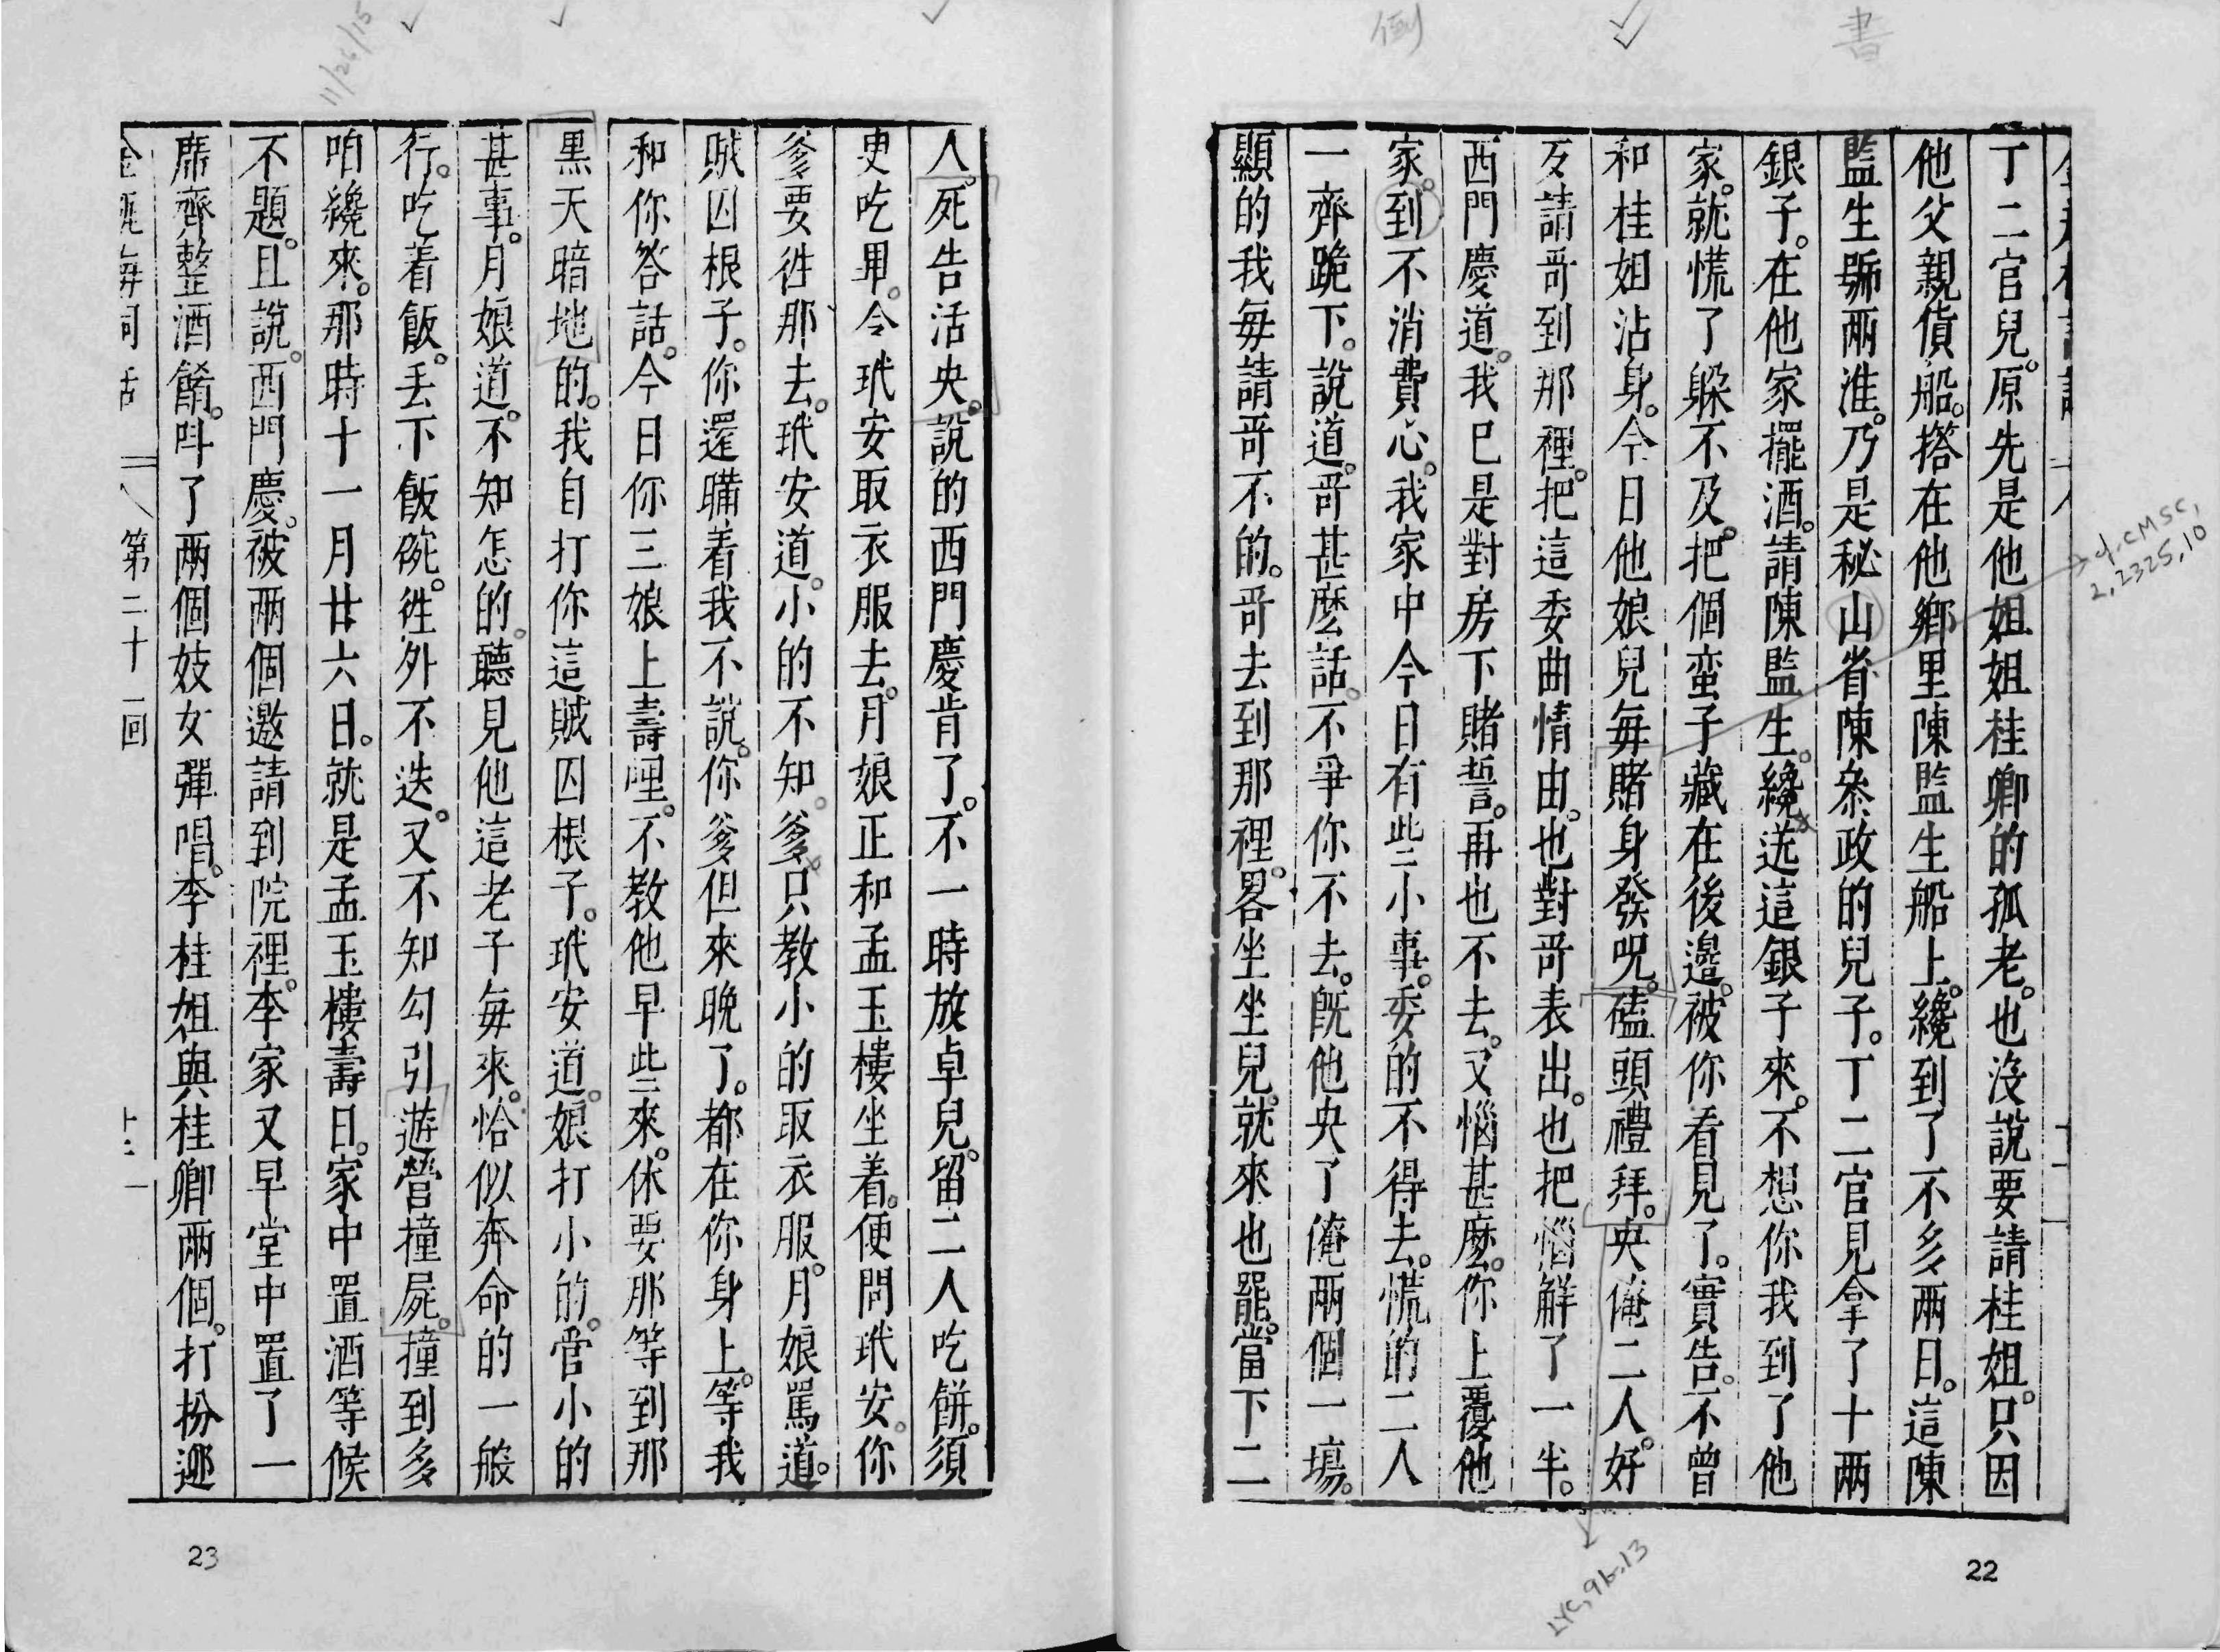 倒
書
丁二官兒。原先是他姐姐桂卿的孤老。也没說要請桂姐。只因
他父親貨船。搭在他鄉里陳監生船上。纔到了不多兩日。這陳
監生號兩淮。乃是秘山省陳叅政的兒子。丁二官見拿了十兩
銀子。在他家擺酒。請陳監生。纔送這銀子來。不想你我到了他
家。就慌了躲不及。把個蛮子藏在後邊。被你看見了。實告。不曾
和桂姐沾身。今日他娘兒毎賭身發呪。磕頭禮拜。央俺二人。好
歹請哥到那裡。把這委曲情由。也對哥表出。也把惱解了一半。
西門慶道。我已是對房下賭誓。再也不去。又惱甚麽。你上覆他
家。到不消費心。我家中今日有些小事。委的不得去。慌的二人
一齊跪下。說道。哥甚麽話。不爭你不去。旣他央了俺兩個一場。
顯的我毎請哥不的。哥去到那裡。畧坐坐兒。就來也罷。當下二
q.CMSC,
2,2325,10
LYC,9b.13
22
11/26/15
人。死告活央。說的西門慶肯了。不一時放卓兒。留二人吃餅。須
吏吃畢。令玳安取衣服去。月娘正和孟玉樓坐着。便問玳安。你
爹要徃那去。玳安道。小的不知。爹只教小的取衣服。月娘罵道。
賊囚根子。你還瞞着我不說。你爹但來晚了。都在你身上。等我
和你答話。今日你三娘上壽哩。不教他早些來。休要那等到那
黒天暗地的。我自打你這賊囚根子。玳安道。娘打小的。管小的
甚事。月娘道。不知怎的。聽見他這老子毎來。恰似奔命的一般
行。吃着飯。丢下飯碗。徃外不迭。又不知勾引遊營撞屍。撞到多
咱纔來。那時十一月廿六日。就是孟玉樓壽日。家中置酒等候
不題。且說。西門慶。被兩個邀請到院裡。李家又早堂中置了一
席齊整酒餚。呌了兩個妓女彈唱。李桂姐與桂卿兩個。打扮迎
金瓶梅詞話 第二十一回
23